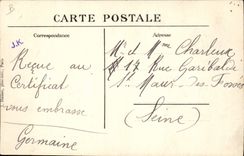 CARTE POSTALE
Correspondance
Adresse
J.K
Reçue au
Certificat
vous embrasse
Germaine
Mr et Mme Charleux
17 Rue Garibaldi
St Maur-des-Fossés
(Seine)